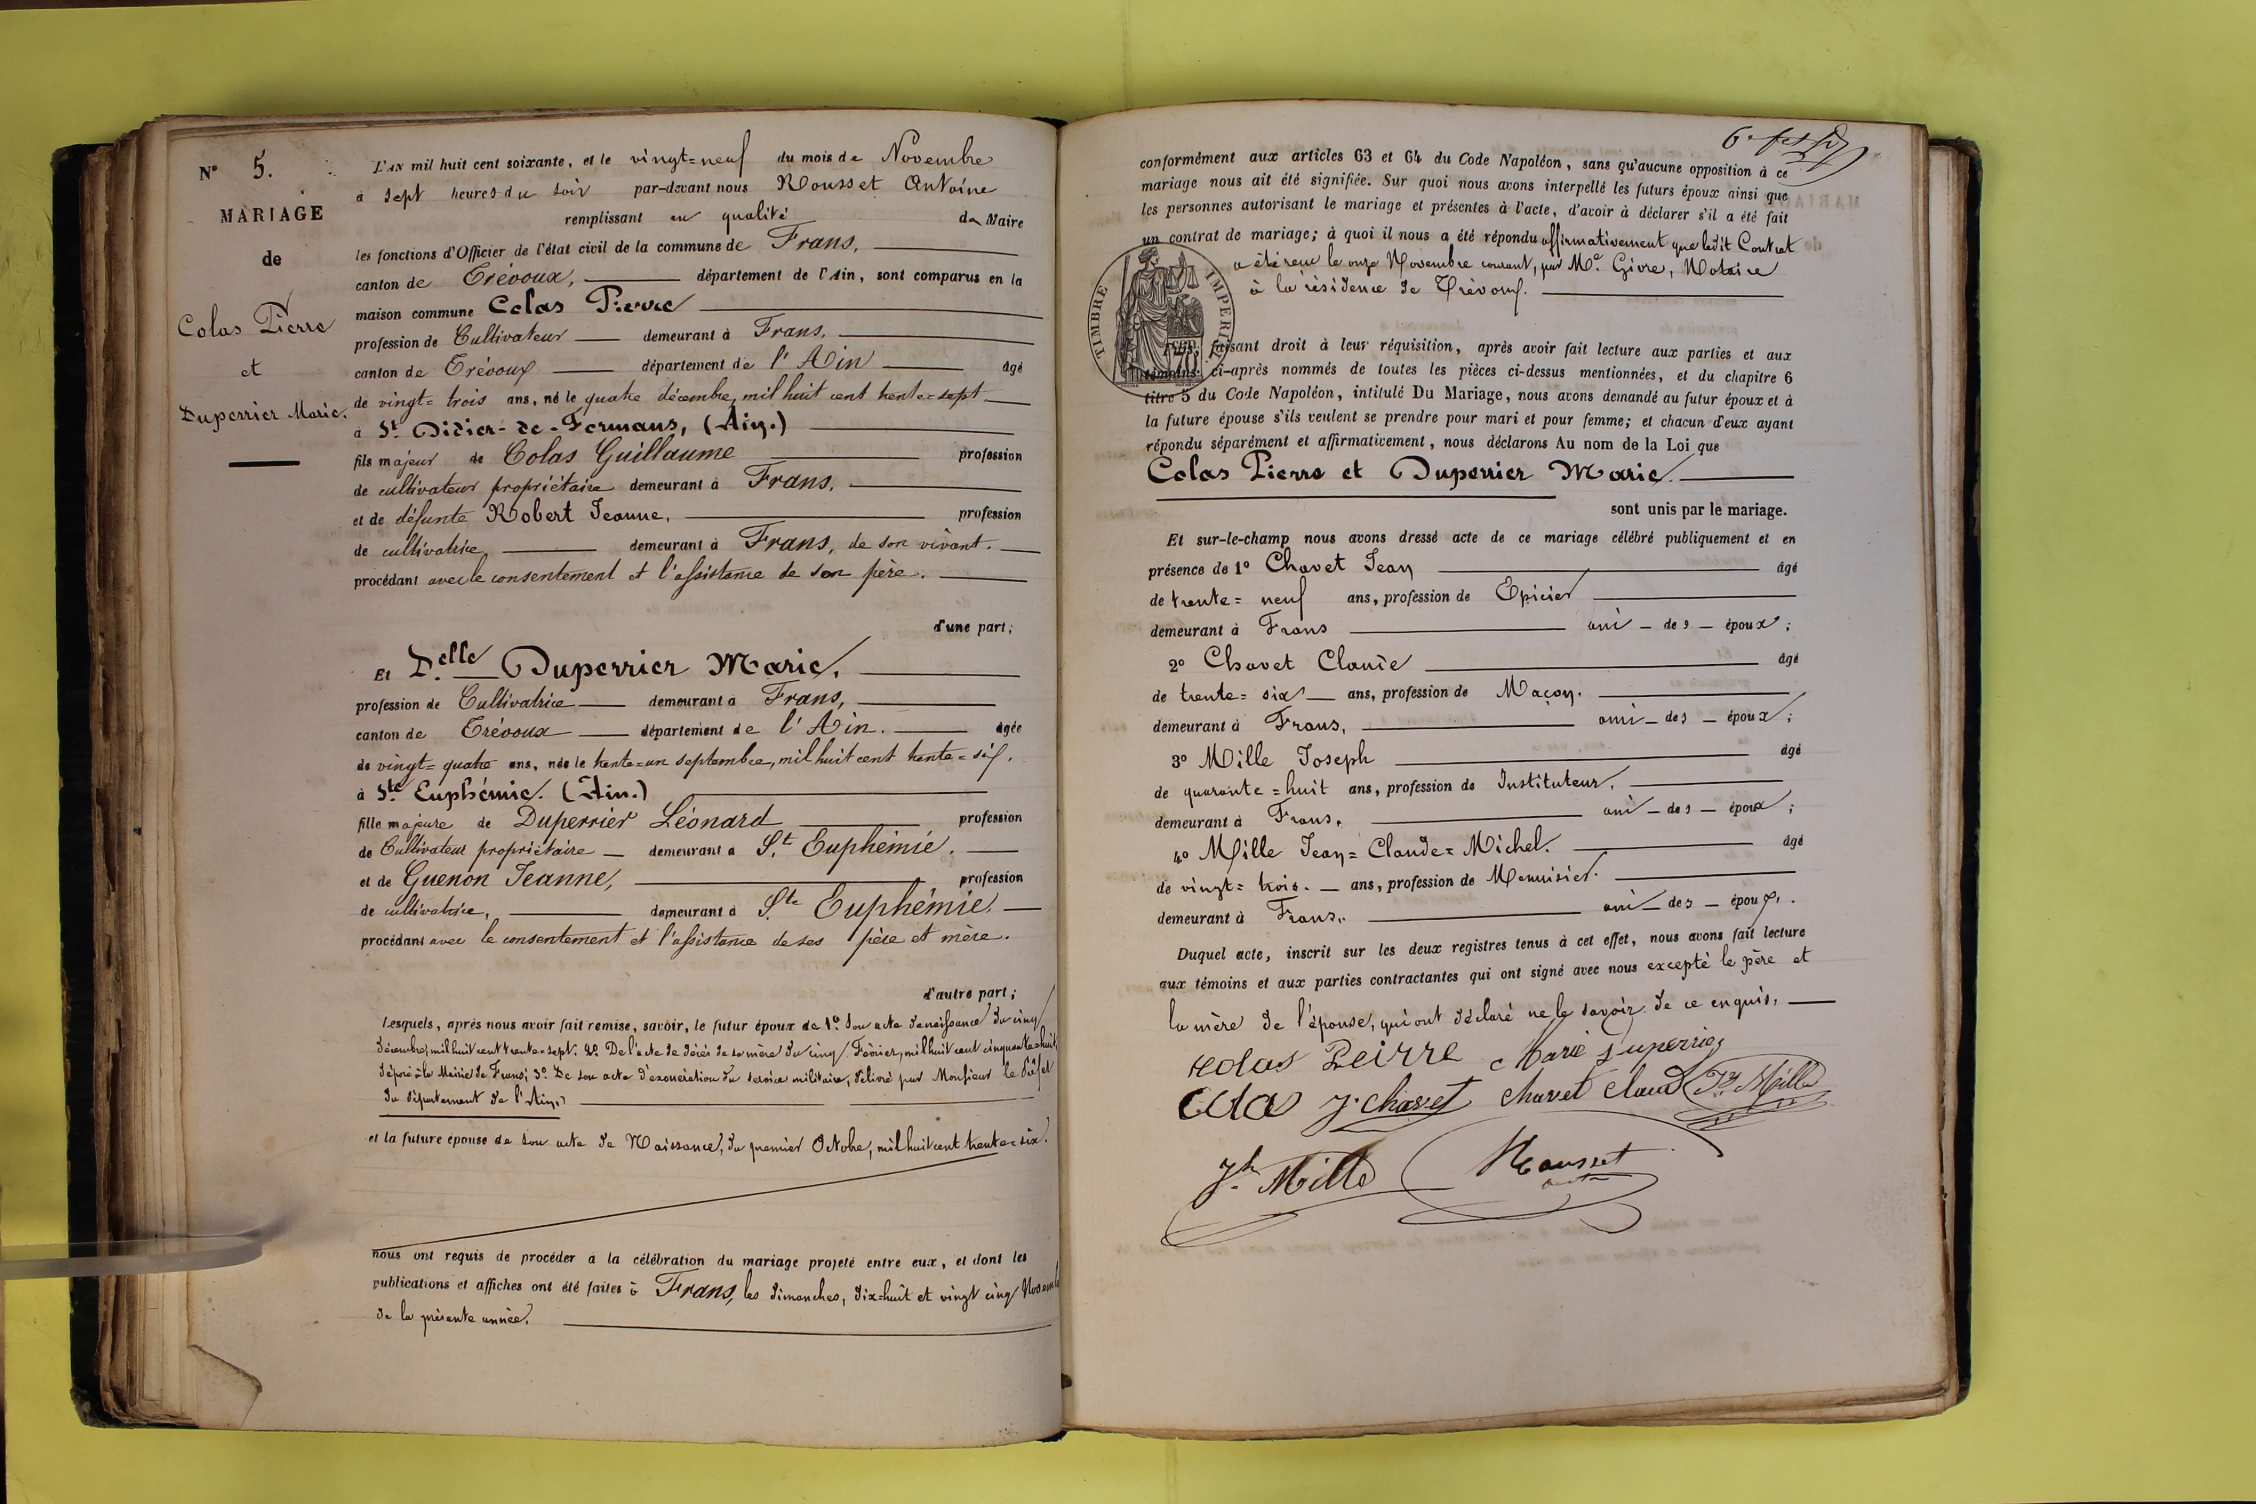 N° 5.
MARIAGE
de
Colas Pierre
et
Duperrier Marie.
L'AN mil huit cent soixante, et le vingt=neuf du mois de Novembre
à sept heures du soir par-devant nous Rousset Antoine
remplissant en qualité de Maire
les fonctions d'Officier de l'état civil de la commune de Frans,
canton de Trévoux, département de l'Ain, sont comparus en la
maison commune Colas Pierre
profession de Cultivateur demeurant à Frans,
canton de Trévoux département de l'Ain âgé
de vingt=trois ans, né le quatre décembre, mil huit cent trente=sept
à St. Didier-de-Formans, (Ain.)
fils majeur de Colas Guillaume profession
de cultivateur propriétaire demeurant à Frans,
et de défunte Robert Jeanne, profession
de cultivatrice, demeurant à Frans, de son vivant.
procédant avec le consentement et l'assistance de son père.
d'une part;
Et D.elle Duperrier Marie,
profession de Cultivatrice demeurant à Frans,
canton de Trévoux département de l'Ain. âgée
de vingt=quatre ans, née le trente=un septembre, mil huit cent trente=six,
à Ste. Euphémie. (Ain.)
fille majeure de Duperrier Léonard profession
de Cultivateur propriétaire demeurant à S.t Euphémie.
et de Guenon Jeanne, profession
de cultivatrice, demeurant à S.te Euphémie.
procédant avec le consentement et l'assistance de ses père et mère.
d'autre part;
Lesquels, après nous avoir fait remise, savoir, le futur époux de 1° Son acte de naissance du cinq
décembre, mil huit cent trente=sept. 2° De l'acte de décès de sa mère du cinq Février, mil huit cent cinquante=huit
déposé à la Mairie de Frans; 3° De son acte d'exonération du service militaire, délivré par Monsieur le Préfet
du département de l'Ain.
et la future épouse de son acte de Naissance, du premier Octobre, mil huit cent trente=six.
nous ont requis de procéder à la célébration du mariage projeté entre eux, et dont les
publications et affiches ont été faites à Frans, les dimanches, dix=huit et vingt cinq Novembre
de la présente année.
conformément aux articles 63 et 64 du Code Napoléon, sans qu'aucune opposition à ce
mariage nous ait été signifiée. Sur quoi nous avons interpellé les futurs époux ainsi que
les personnes autorisant le mariage et présentes à l'acte, d'avoir à déclarer s'il a été fait
un contrat de mariage; à quoi il nous a été répondu affirmativement que ledit Contrat
a été reçu le onze Novembre courant, par Me. Givre, Notaire
à la résidence de Trévoux.
TIMBRE IMPERIAL
faisant droit à leur réquisition, après avoir fait lecture aux parties et aux
témoins ci-après nommés de toutes les pièces ci-dessus mentionnées, et du chapitre 6
titre 5 du Code Napoléon, intitulé Du Mariage, nous avons demandé au futur époux et à
la future épouse s'ils veulent se prendre pour mari et pour femme; et chacun d'eux ayant
répondu séparément et affirmativement, nous déclarons Au nom de la Loi que
Colas Pierre et Duperrier Marie.
sont unis par le mariage.
Et sur-le-champ nous avons dressé acte de ce mariage célébré publiquement et en
présence de 1° Chavet Jean âgé
de trente=neuf ans, profession de Epicier
demeurant à Frans ami des époux;
2° Chavet Claude âgé
de trente=six ans, profession de Maçon.
demeurant à Frans, ami des époux;
3° Mille Joseph âgé
de quarante=huit ans, profession de Instituteur,
demeurant à Frans, ami des époux;
4° Mille Jean=Claude=Michel. âgé
de vingt=trois. ans, profession de Menuisier.
demeurant à Frans, ami des époux.
Duquel acte, inscrit sur les deux registres tenus à cet effet, nous avons fait lecture
aux témoins et aux parties contractantes qui ont signé avec nous excepté le père et
la mère de l'épouse, qui ont déclaré ne le savoir de ce enquis,
colas Peirre Marie Duperrier
Cola J. Chavet Chavet Claud Jn. Mille
Jh. Mille Rousset